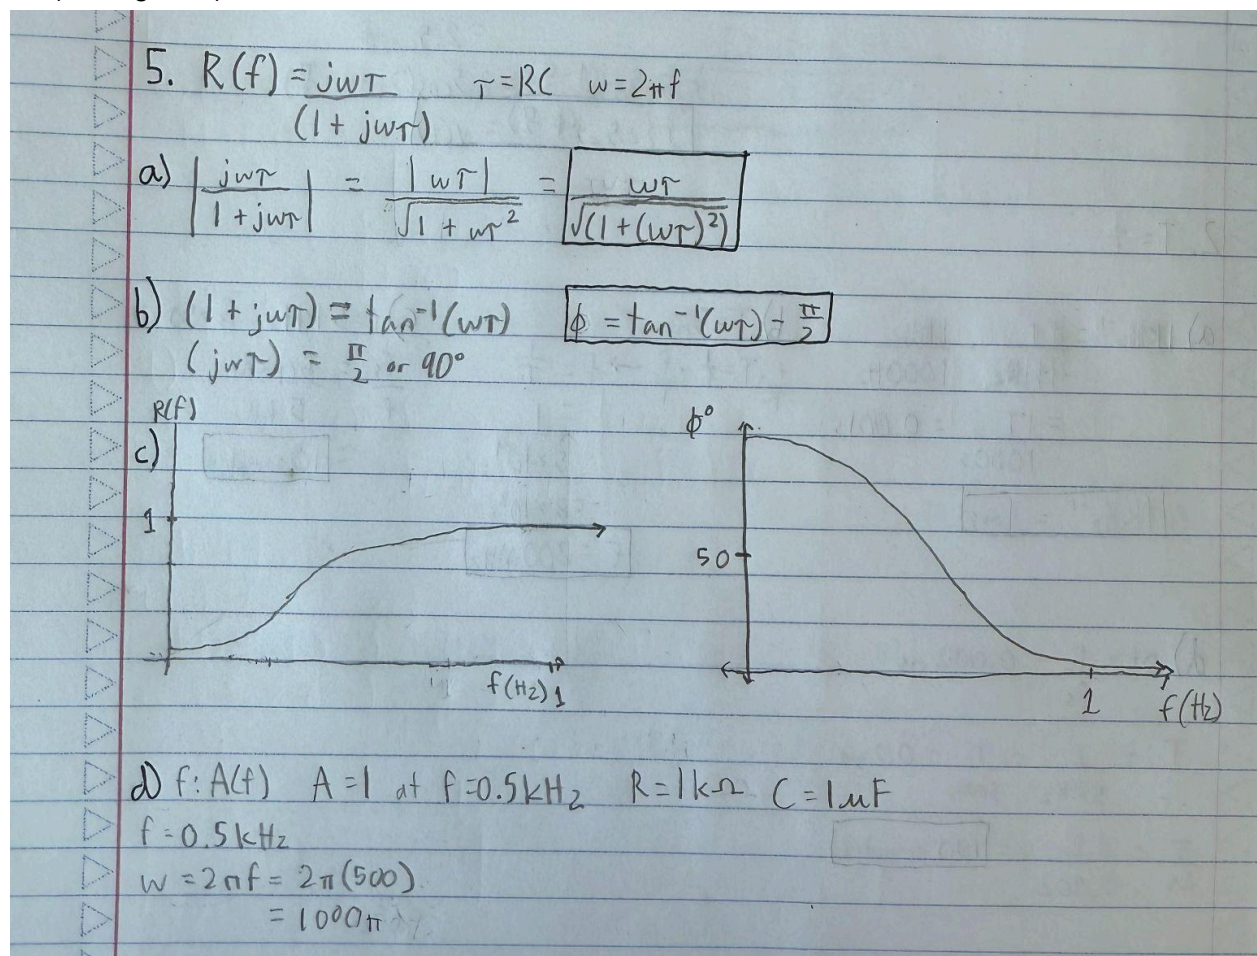 5. R(f) = jωτ / (1 + jωτ) τ = RC ω = 2πf
a) |jωτ / 1 + jωτ| = |ωτ| / √1 + ωτ² = ωτ / √(1 + (ωτ)²)
b) (1 + jωτ) = tan⁻¹(ωτ) ϕ = tan⁻¹(ωτ) - π/2
(jωτ) = π/2 or 90°
R(f) ϕ°
c)
1
50
f(Hz) 1
1 f(Hz)
d) f: A(f) A = 1 at f = 0.5kHz R = 1kΩ C = 1μF
f = 0.5kHz
ω = 2πf = 2π(500)
= 1000π